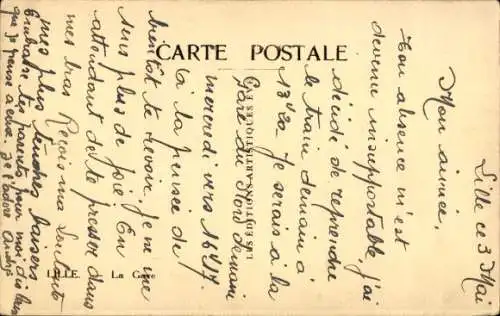 CARTE POSTALE
Lille ce 3 Mai
Mon aimée,
Ton absence m'est
devenu insupportable, j'ai
décidé de reprendre
le train demain à
13h20. Je serais à la
gare du Nord demain
mercredi vers 16h17.
A la pensée de
bientôt te revoir, je ne me
sens plus de joie. En
attendant de te presser dans
mes bras Reçois ma
mes plus tendres baisers
Embrasse les parents pour moi, dis leur
que je pense à eux. Je t'adore André
LES EDITIONS ARTISTIQUES
LILLE. - La Gare